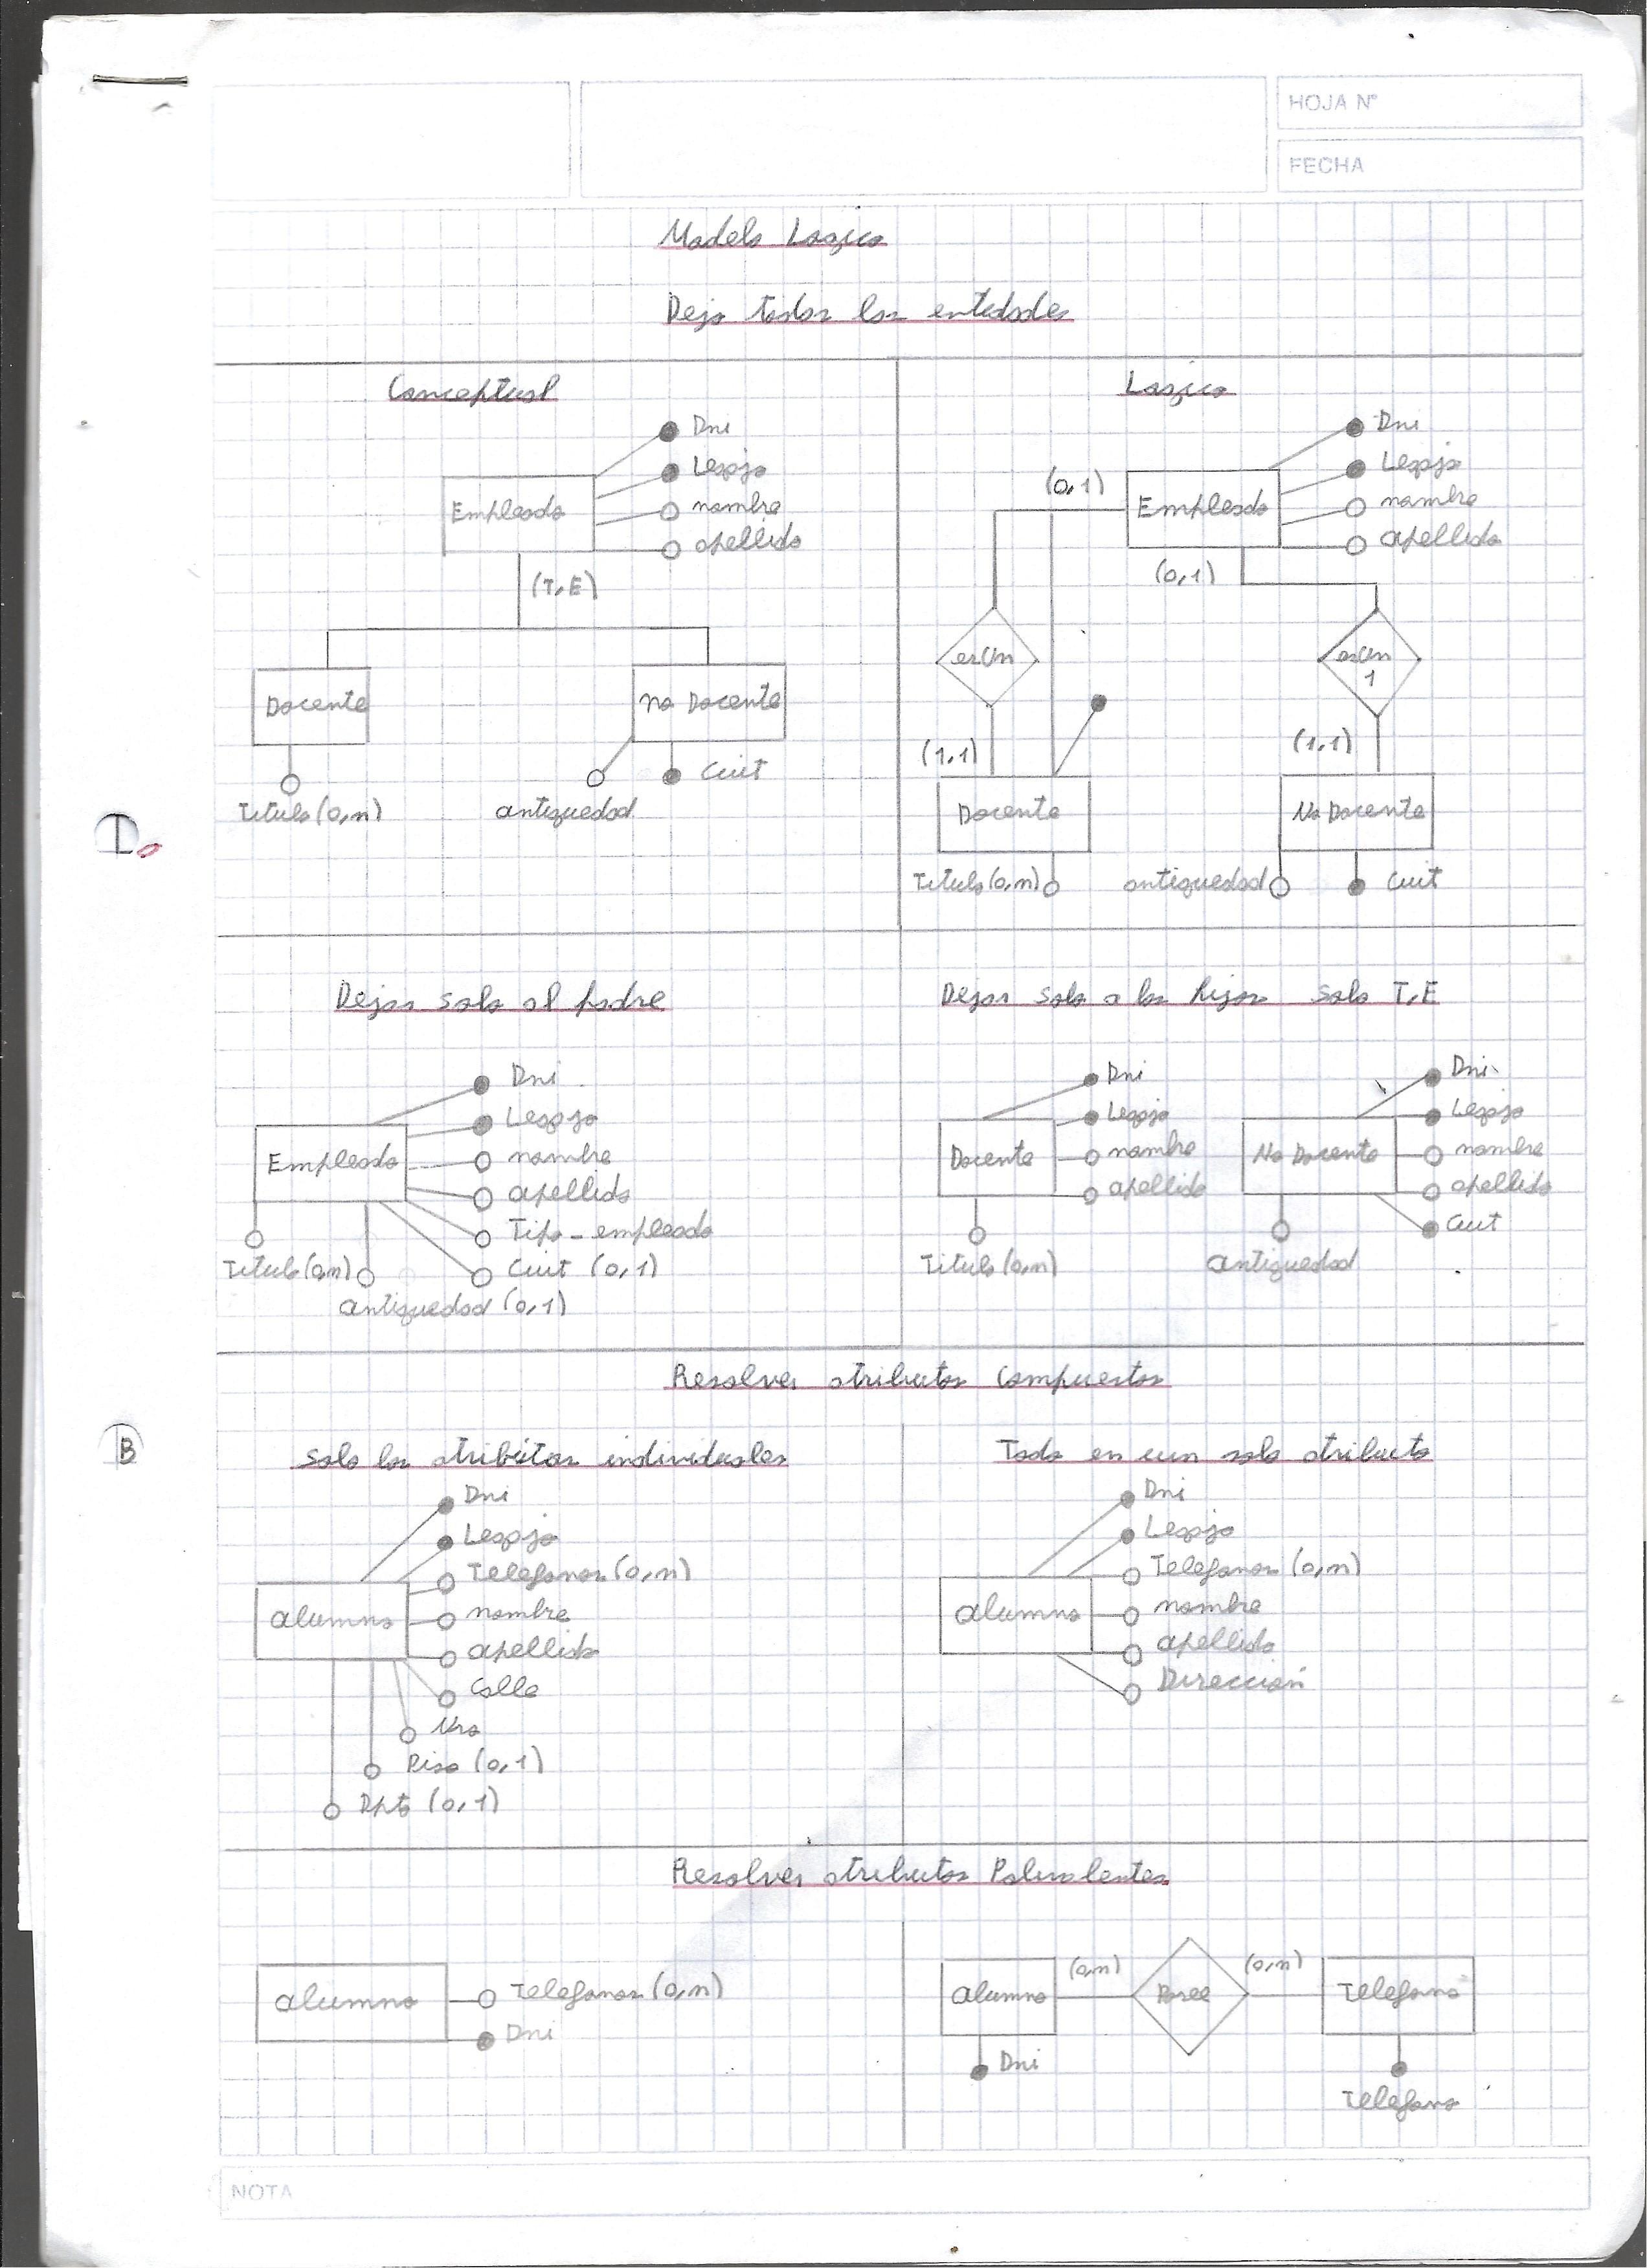 HOJA Nº
FECHA
Modelo Logico
Deja todas las entidades
Conceptual
Dni
Legajo
nombre
apellido
Empleado
(T,E)
Docente
no Docente
Cuit
Titulo (0,n)
antiguedad
Logico
Dni
Legajo
nombre
apellido
(0,1)
Empleado
(0,1)
esUn
esUn
1
(1,1)
(1,1)
Docente
No Docente
Titulo (0,n)
antiguedad
Cuit
I.
Dejar solo al padre
Dni
Legajo
nombre
apellido
Empleado
Tipo_empleado
Cuit (0,1)
Titulo (0,n)
antiguedad (0,1)
Dejar solo a los hijos solo T,E
Dni
Legajo
nombre
apellido
Docente
Titulo (0,n)
Dni
Legajo
nombre
apellido
Cuit
No Docente
antiguedad
Resolver atributos Compuestos
B
Solo los atributos individuales
Dni
Legajo
Telefonos (0,n)
nombre
apellido
Calle
Nro
Piso (0,1)
Dpto (0,1)
alumno
Todo en un solo atributo
Dni
Legajo
Telefonos (0,n)
nombre
apellido
Dirección
alumno
Resolver atributos Polivalentes
alumno
Telefonos (0,n)
Dni
alumno
(0,n)
Posee
(0,n)
Telefono
Dni
Telefono
NOTA